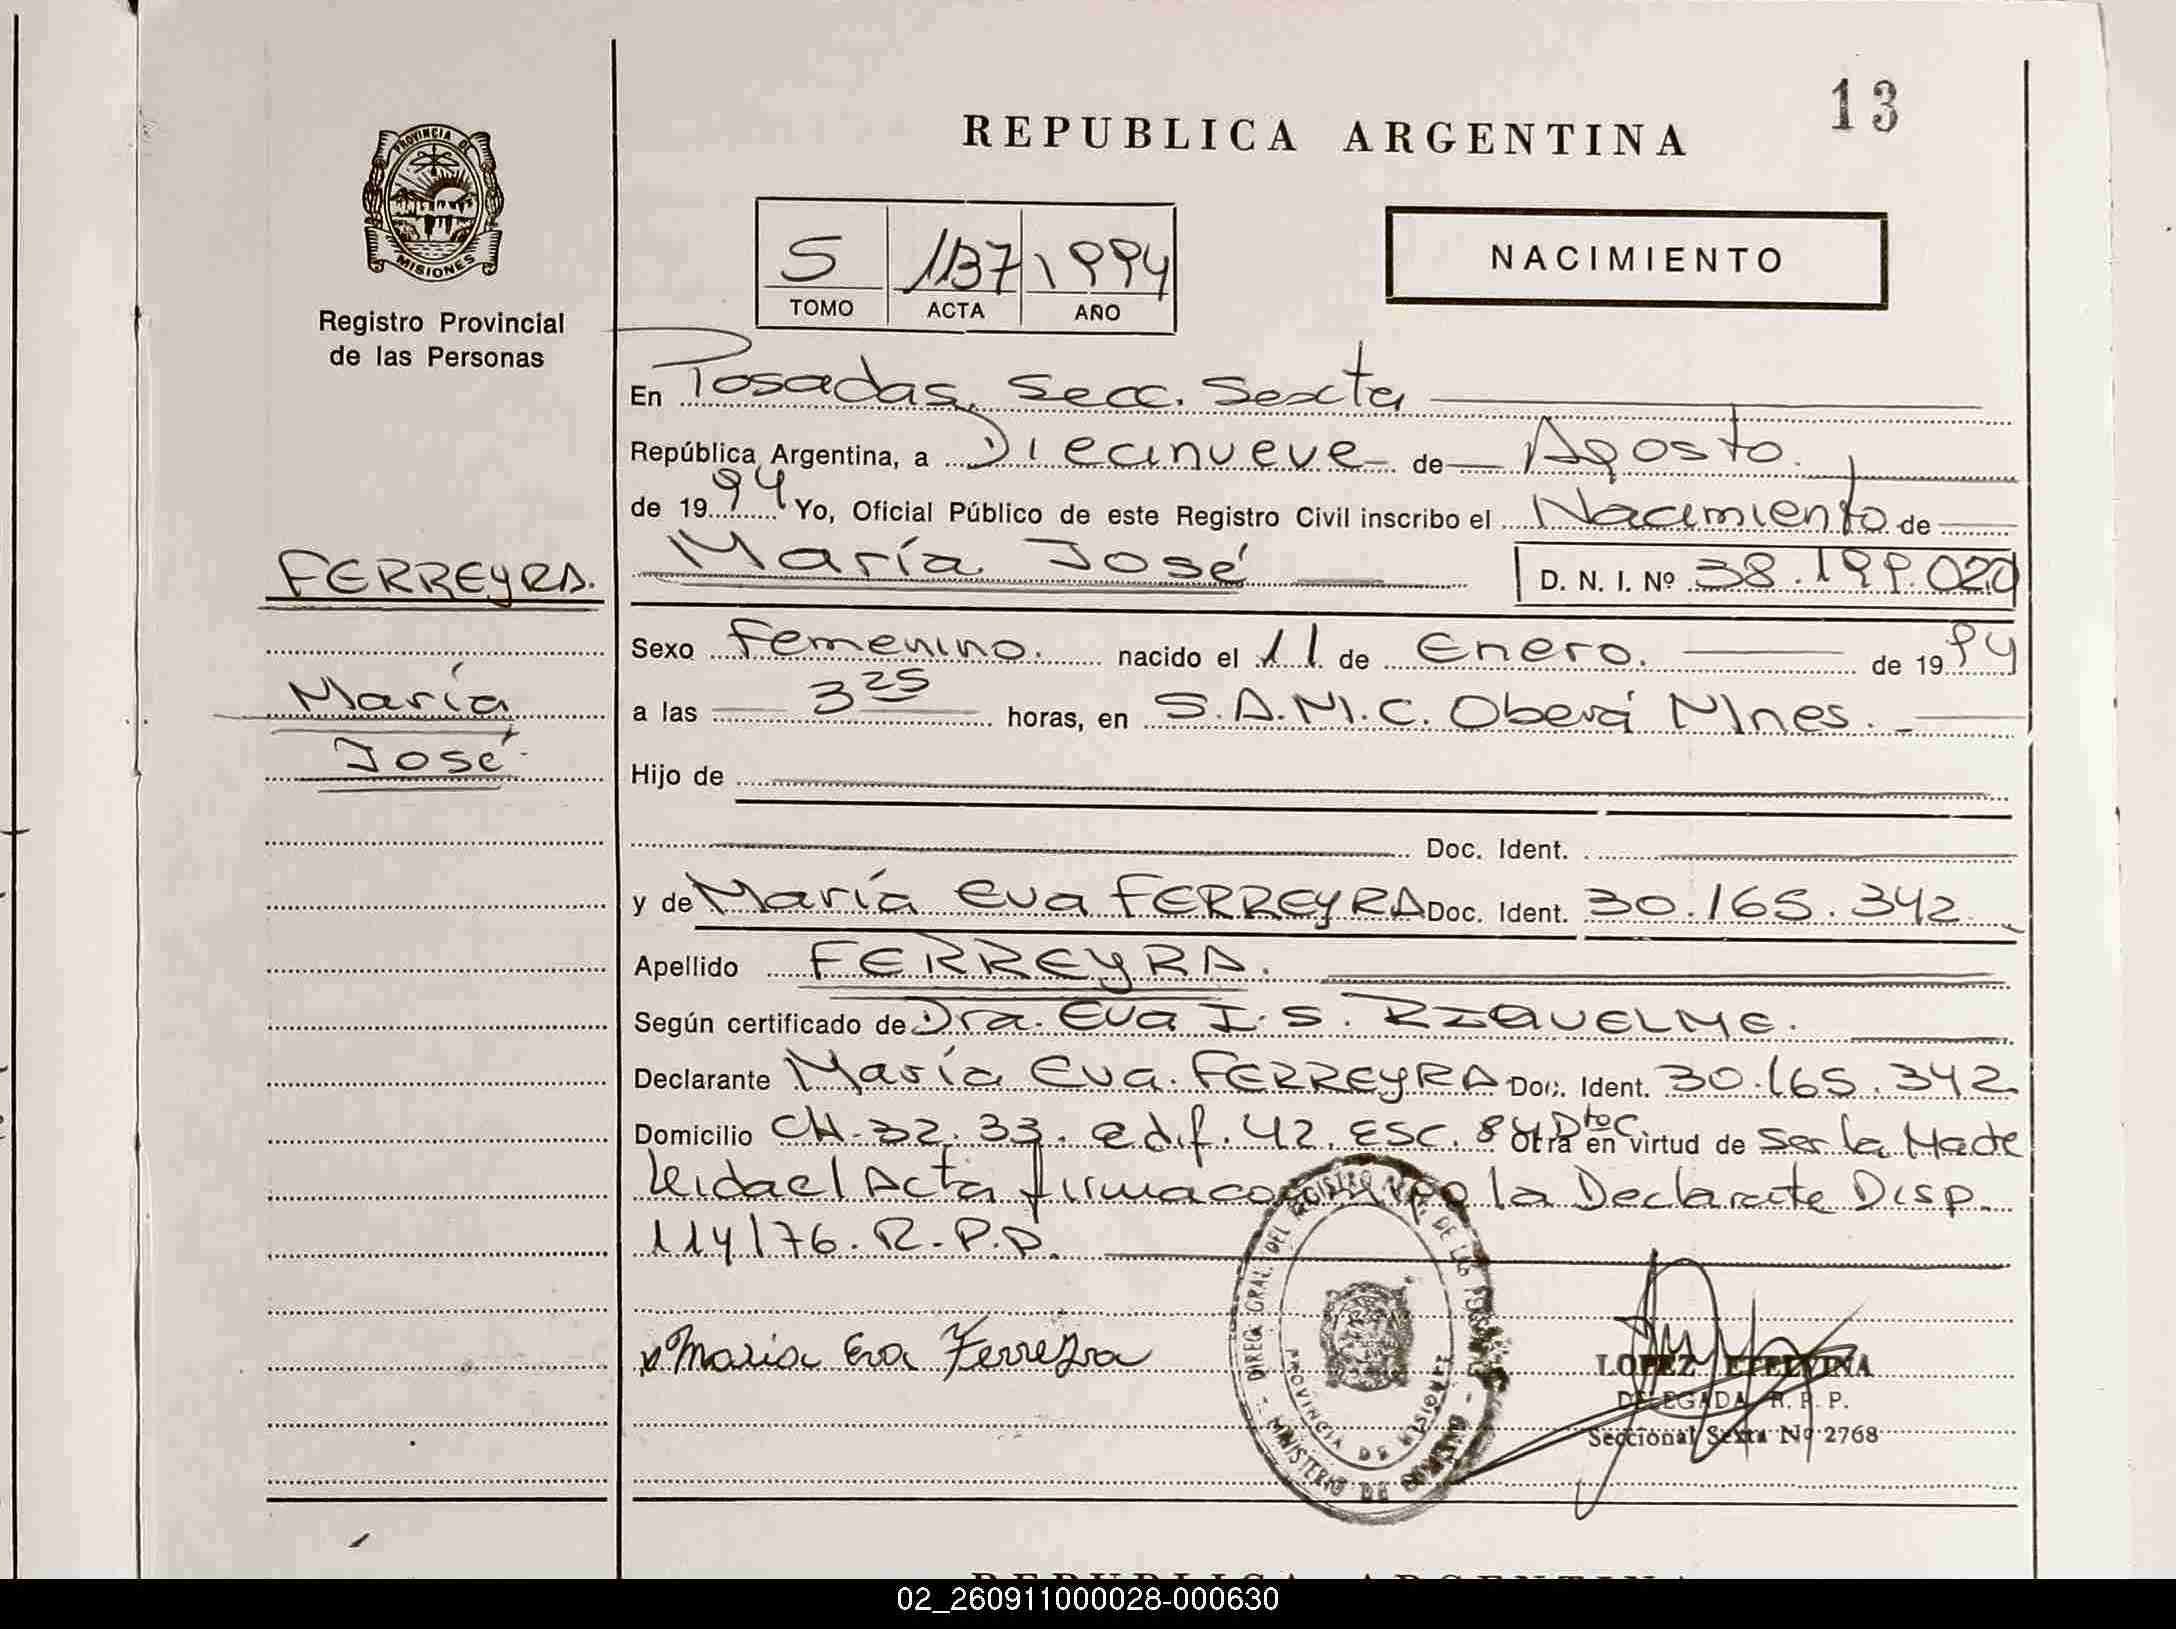 13
REPUBLICA ARGENTINA
PROVINCIA DE
MISIONES
Registro Provincial
de las Personas
5 1137 1994
TOMO ACTA AÑO
NACIMIENTO
En Posadas, Secc. Sexta
República Argentina, a Diecinueve de Agosto.
de 1994 Yo, Oficial Público de este Registro Civil inscribo el Nacimiento de
FERREYRA.
María José D. N. I. Nº 38.199.020
Sexo Femenino. nacido el 11 de Enero. de 1994
María
José
a las 3 25 horas, en S.A.M.C. Oberá Mnes.
Hijo de
Doc. Ident.
y de María Eva FERREYRA Doc. Ident. 30.165.342
Apellido FERREYRA.
Según certificado de Dra. Eva I. S. RIQUELME.
Declarante María Eva. FERREYRA Doc. Ident. 30.165.342
Domicilio CH. 32.33. edif. 42. ESC. 84 Dto C. Otra en virtud de ser la Madre
Leida el Acta firma conmigo la Declarante Disp.
114/76. R.P.P.
Maria Eva Ferreyra
DIREG. GRAL. DEL REGISTRO PCIAL. DE LAS PERSONAS
PROVINCIA DE MISIONES
MINISTERIO DE GOBIERNO
LOPEZ ETELVINA
DELEGADA R. P. P.
Seccional Sexta Nº 2768
REPUBLICA ARGENTINA
02_260911000028-000630